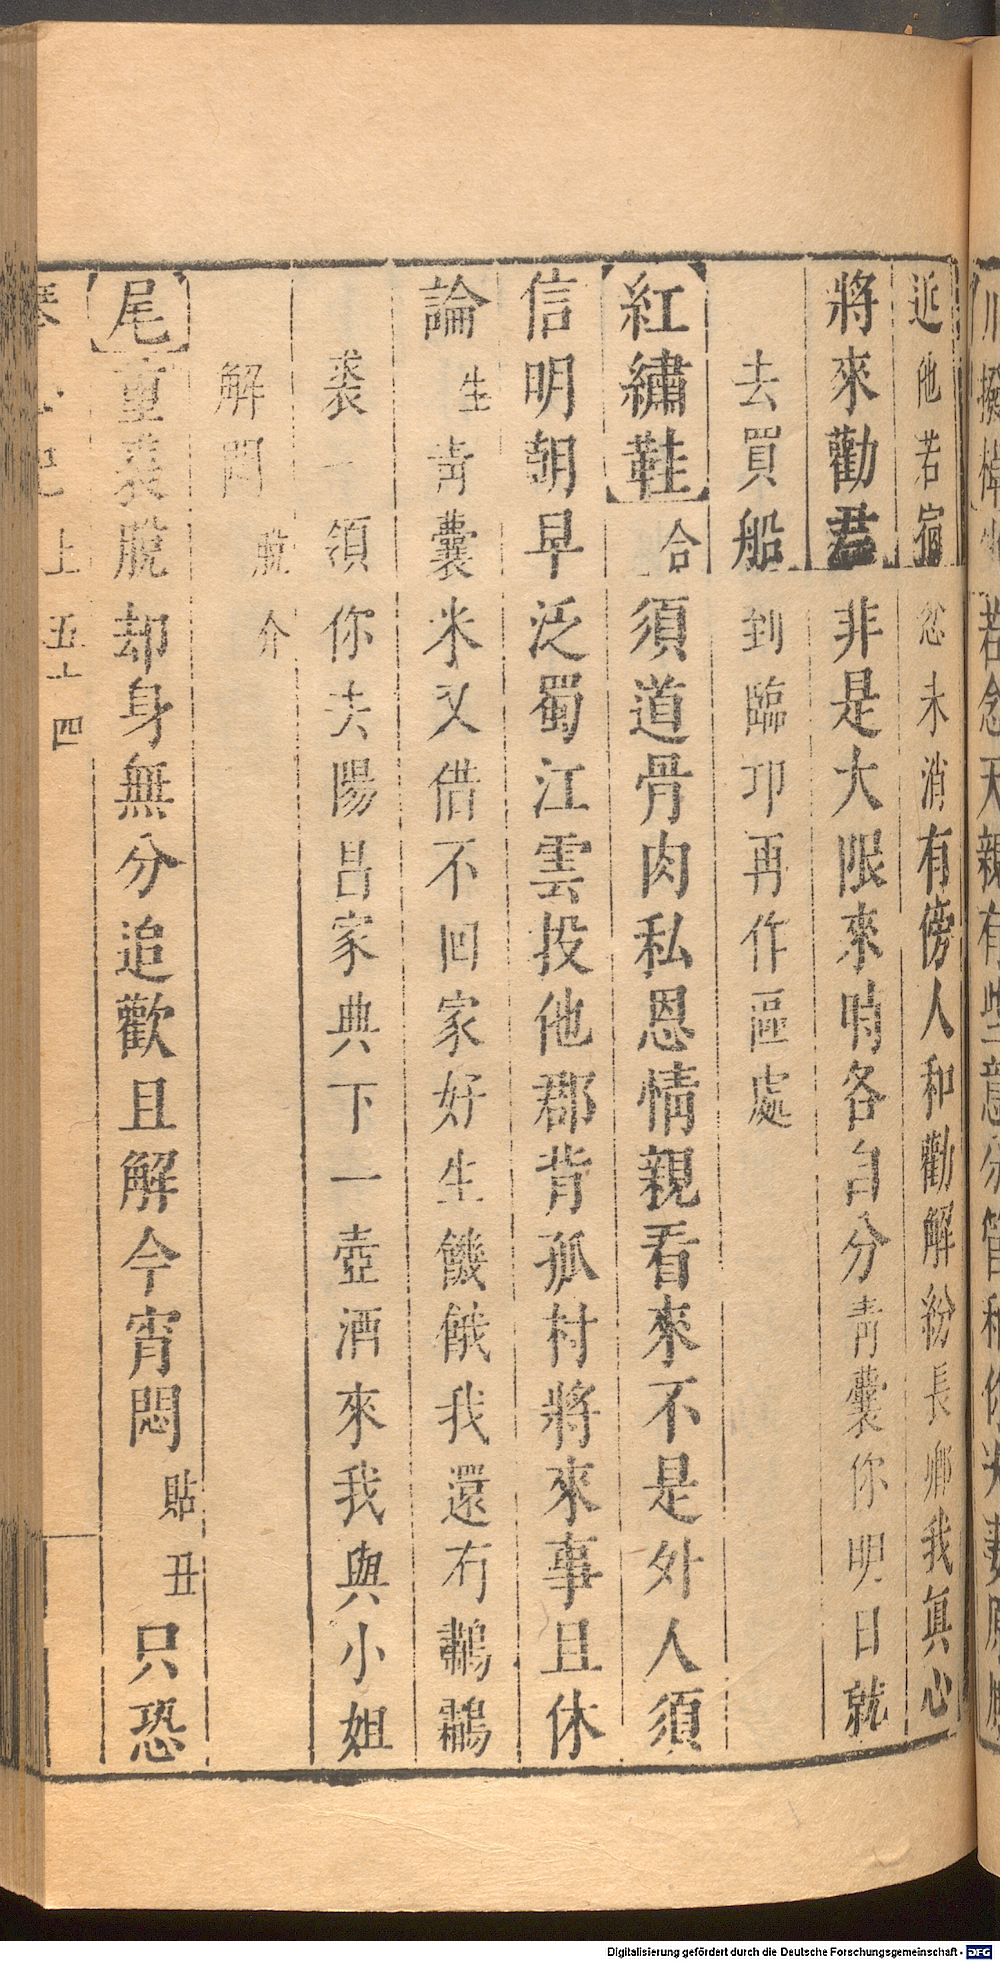 近他若宿忿未消有傍人和勸解紛長卿我眞心
將來勸君非是大限來時各自分青囊你明日就
去買船到臨卭再作區處
【紅繡鞋】合須道骨肉私恩情親看來不是外人須
信明朝早泛蜀江雲投他郡背孤村將來事且休
論生青囊米又借不回家好生饑餓我還有鷫鸘
裘一領你去陽昌家典下一壺酒來我與小姐
解悶脫介
【尾】重裘脫却身無分追歡且解今宵悶貼丑只恐
上 五十四
Digitalisierung gefördert durch die Deutsche Forschungsgemeinschaft - DFG